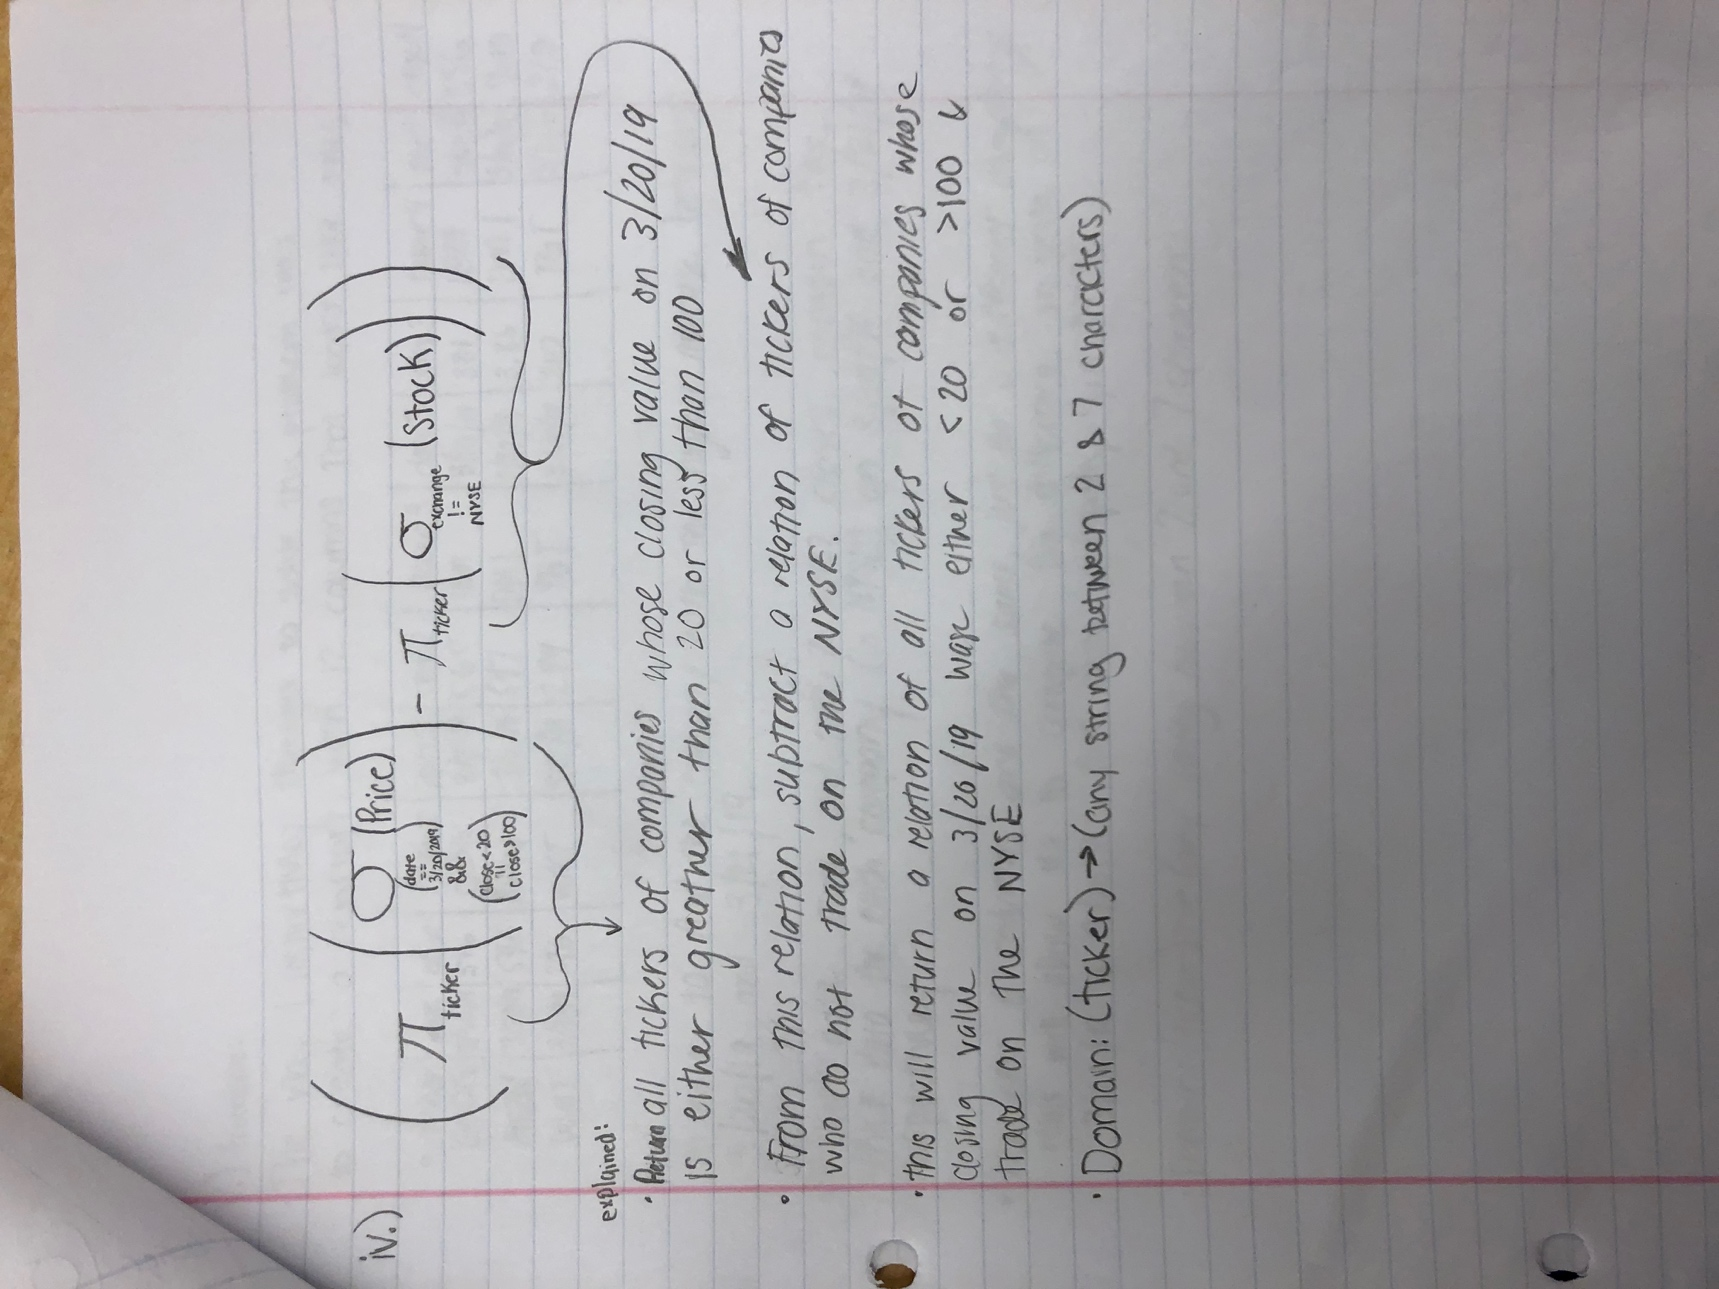 iv.) ( π ticker ( σ (date == 3/20/2019) && (close<20 || close>100) (Price) ) − π ticker ( σ exchange != NYSE (Stock) ) )
explained:
• Return all tickers of companies whose closing value on 3/20/19
is either greather than 20 or less than 100
• From this relation, subtract a relation of tickers of companies
who do not trade on the NYSE.
• This will return a relation of all tickers of companies whose
closing value on 3/20/19 was either <20 or >100 &
trade on the NYSE
• Domain: (ticker) → (any string between 2 & 7 characters)